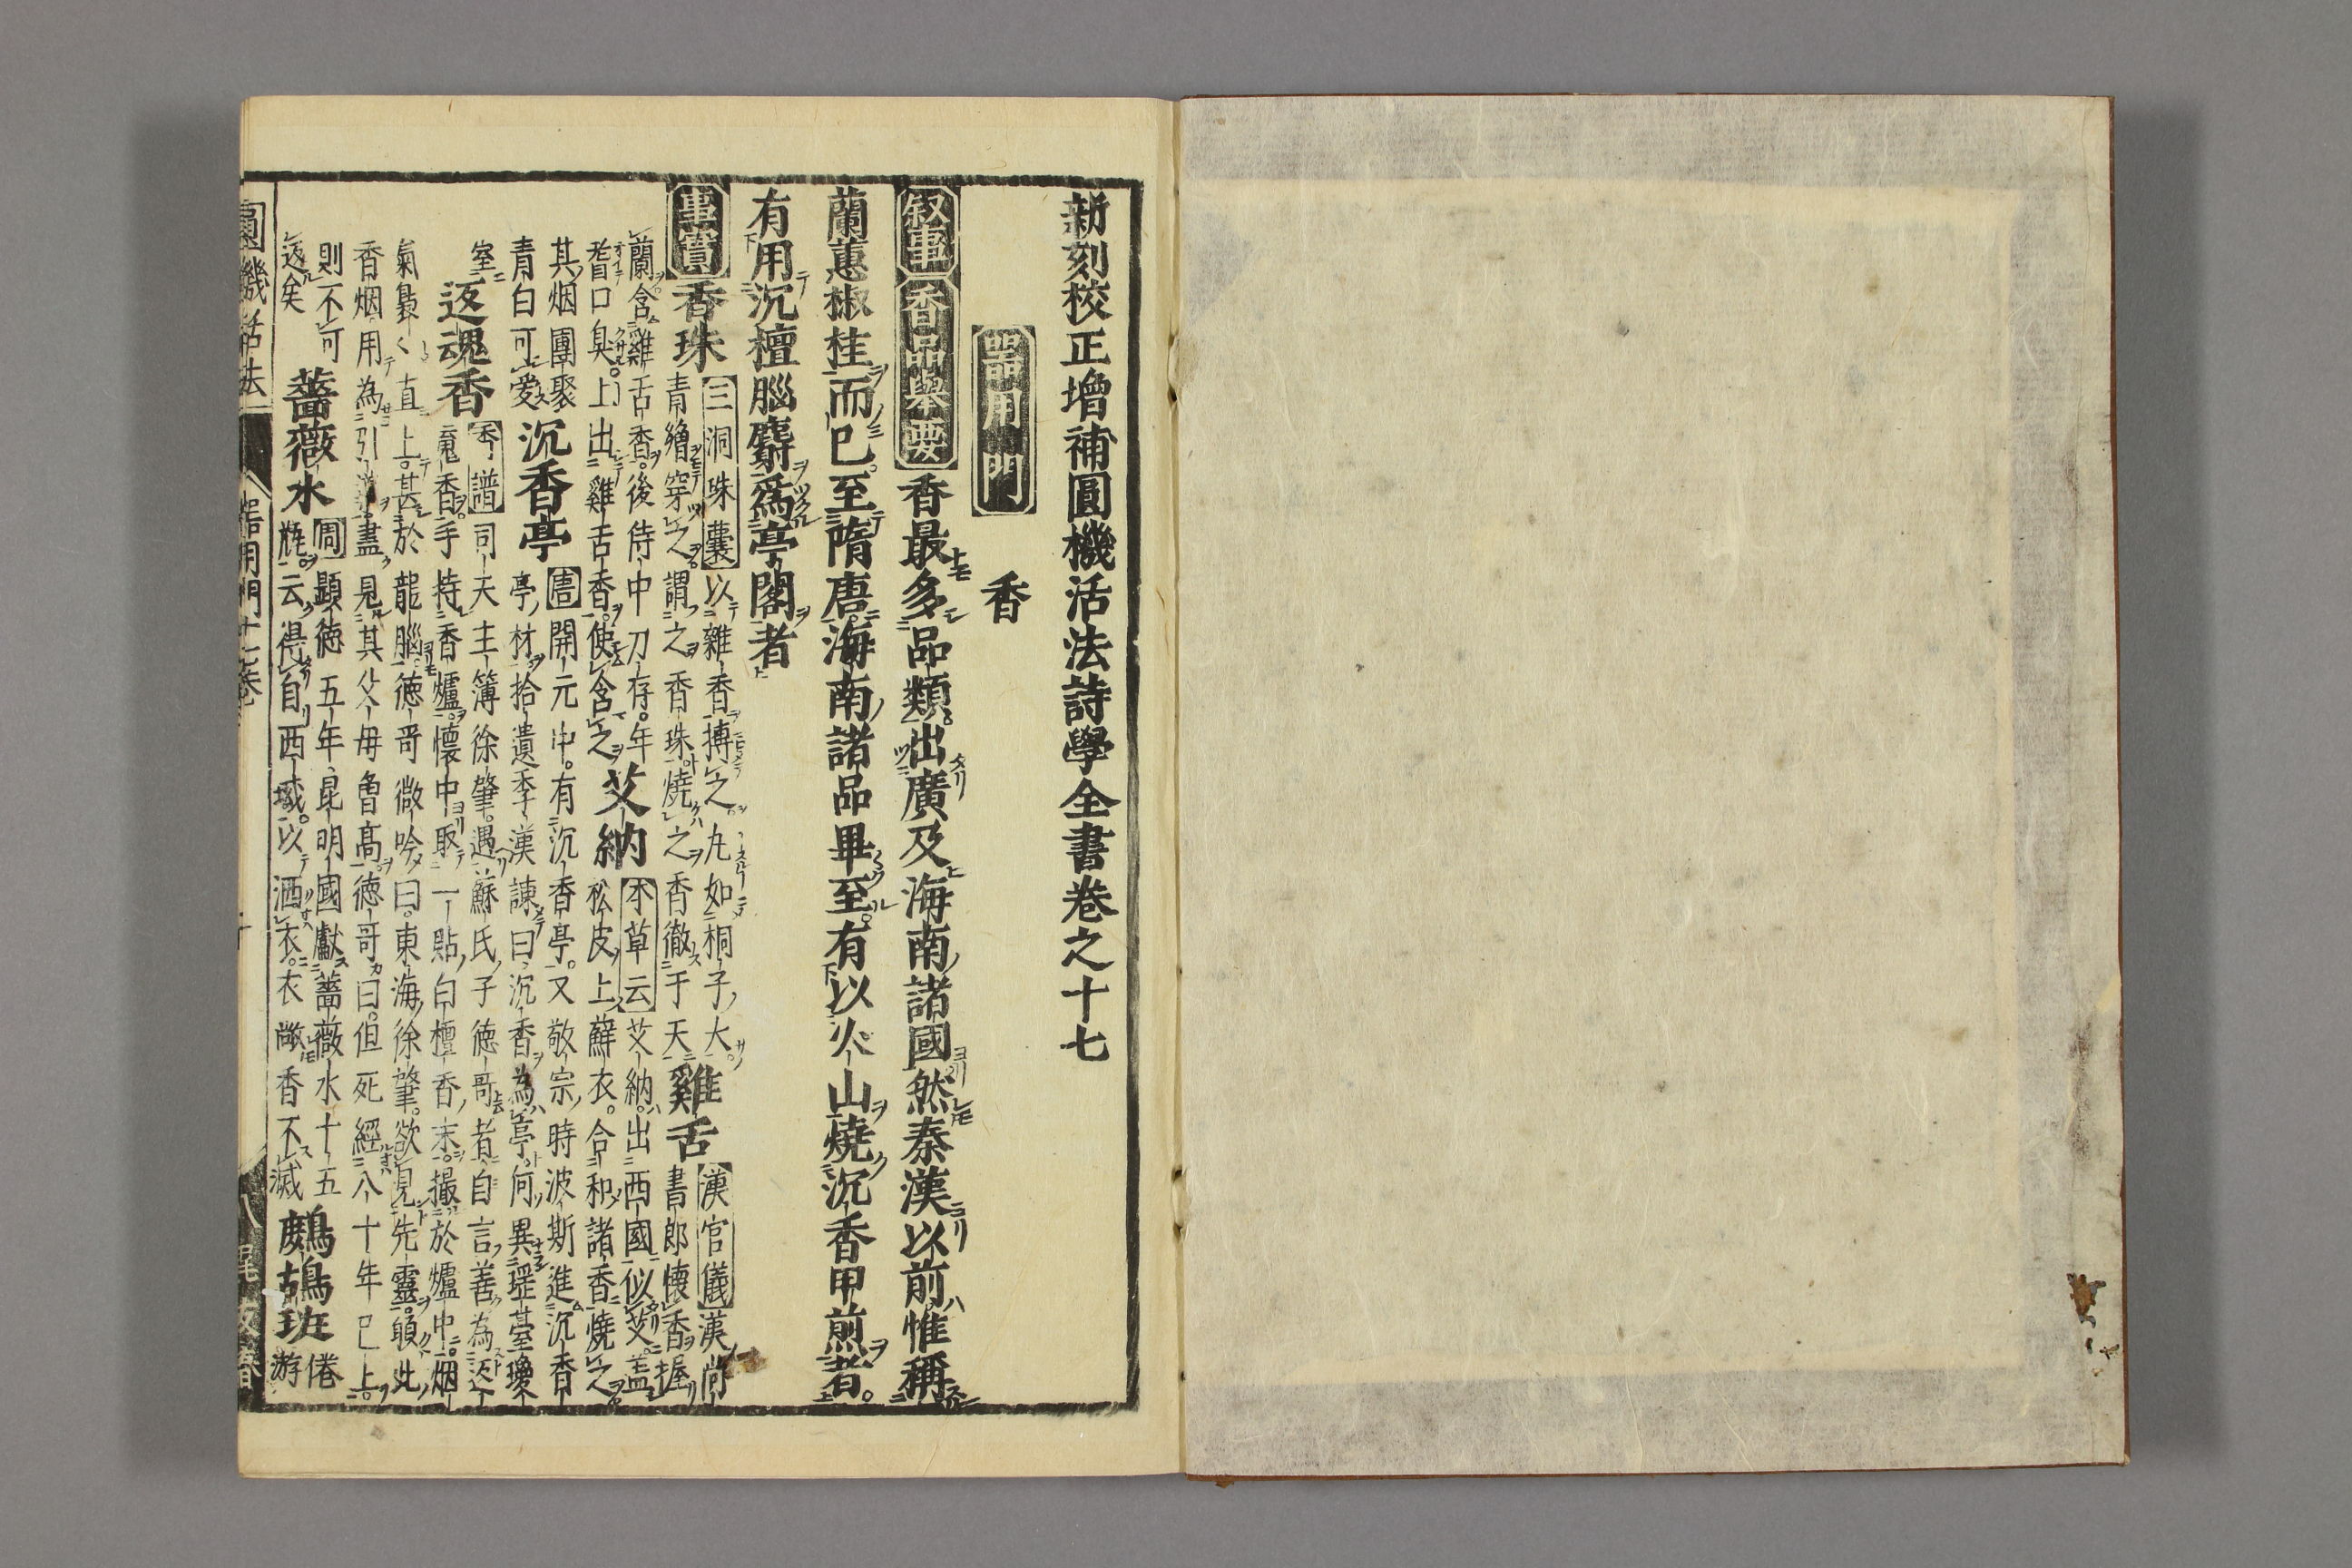 新刻校正增補圓機活法詩學全書卷之十七
器用門
香
叙事 香品舉要 香最多品類出廣及海南諸國然秦漢以前惟稱
蘭蕙椒桂而已至隋唐海南諸品畢至有以火山燒沉香甲煎者
有用沉檀腦麝爲亭閣者
事實 香珠 三洞珠囊 以雜香搏之丸如桐子大
青繒穿之謂之香珠燒之香徹于天 雞舌 漢官儀 漢尚
書郎懷香握
蘭含雞舌香後侍中刀存年
耆口臭上出雞舌香使含之 艾納 本草云 艾納出西國似艾盖
松皮上蘚衣合和諸香燒之
其烟團聚
青白可愛 沉香亭 唐 開元中有沉香亭又敬宗時波斯進沉香
亭材拾遺李漢諫曰沉香為亭何異瑶臺瓊
室 返魂香 香譜 司天主簿徐肇遇蘇氏子德哥者自言善為返
魂香手持香爐懷中取一貼白檀香末撮於爐中烟
氣裊〱直上甚於龍腦德哥微吟曰東海徐肇欲見先靈願此
香烟用為引盡見其父母曾高德哥曰但死經八十年已上
則不可
返矣 薔薇水 周 顕德五年昆明國獻薔薇水十五
瓶云得自西域以洒衣衣敝香不滅 鷓鴣斑 倦
游
圓機活法
器用門十七卷